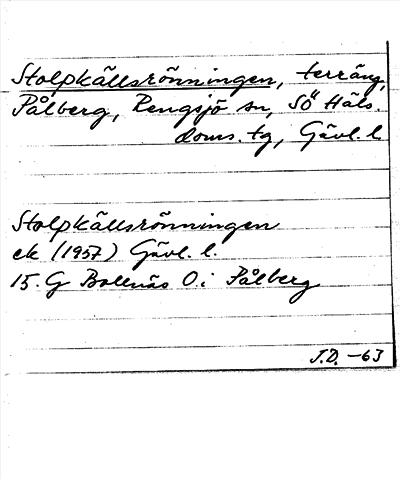 Stolpkällsrönningen, terräng,
Pålberg, Rengsjö sn, SÖ Häls.
doms. tg, Gävl. l.
Stolpkällsrönningen
ek (1957) Gävl. l.
15. G Bollnäs O. i Pålberg
J.D. -63